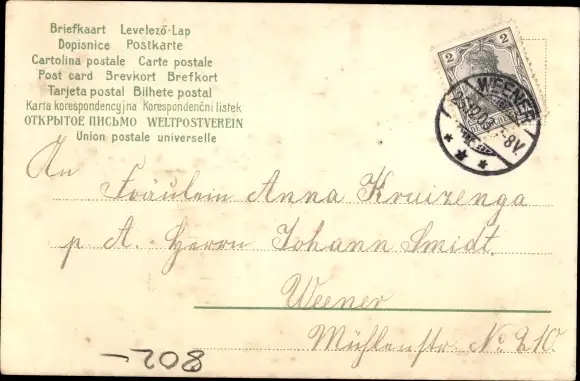 Briefkaart Levelező-Lap
Dopisnice Postkarte
Cartolina postale Carte postale
Post card Brevkort Brefkort
Tarjeta postal Bilhete postal
Karta korespondencyjna Korespondenční lístek
ОТКРЫТОЕ ПИСЬМО WELTPOSTVEREIN
Union postale universelle
2 2
WEENER
8V
An
Fräulein Anna Kruizenga
p A. Herrn Johann Smidt,
Weener
Mühlenstr. No 210.
802-